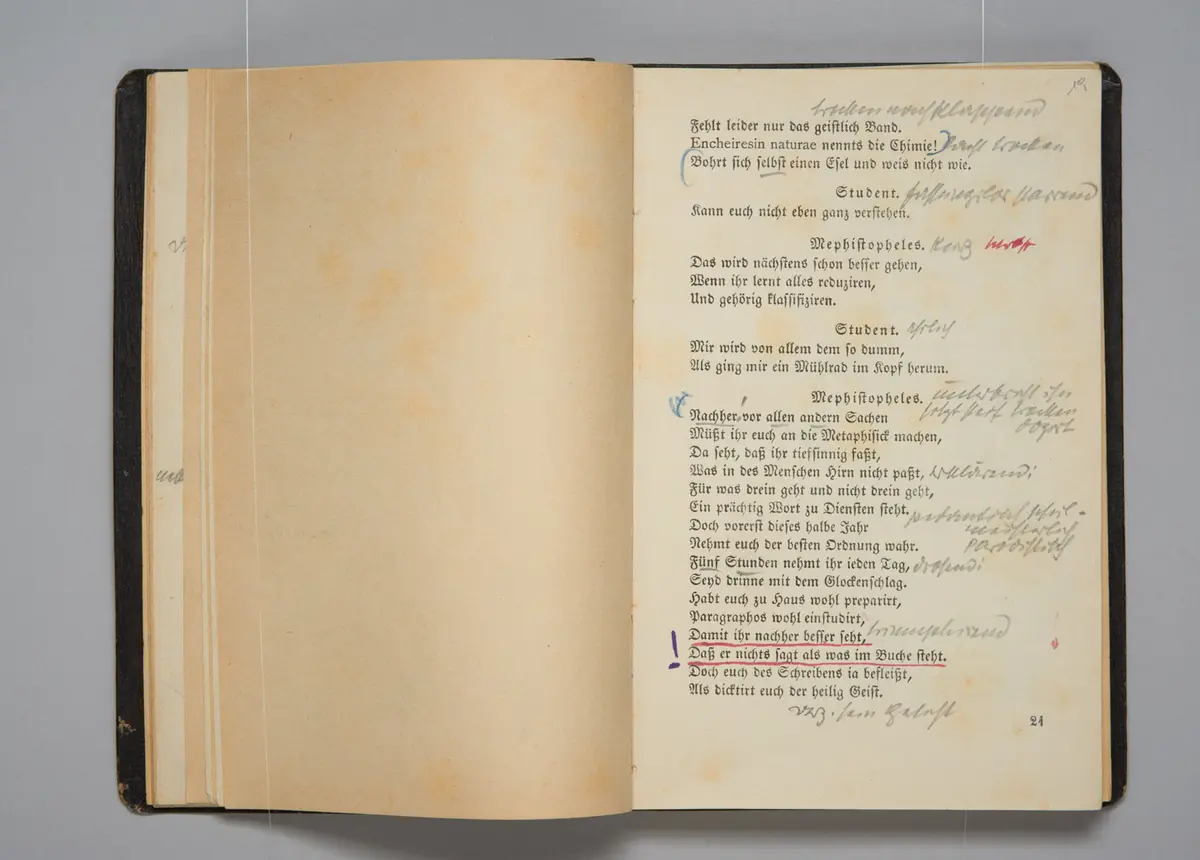 trocken nach klappend
Fehlt leider nur das geistlich Band.
Encheiresin naturae nennts die Chimie!
lacht trocken
Bohrt sich selbst einen Esel und weis nicht wie.
Student.
fassungslos starrend
Kann euch nicht eben ganz verstehen.
Mephistopheles.
Kurz
Das wird nächstens schon besser gehen,
Wenn ihr lernt alles reduziren,
Und gehörig klassifiziren.
Student.
ehrlich
Mir wird von allem dem so dumm,
Als ging mir ein Mühlrad im Kopf herum.
Mephistopheles.
unterbricht ihn
trocken
Nachher vor allen andern Sachen
Müßt ihr euch an die Metaphisick machen,
Da seht, daß ihr tiefsinnig faßt,
Was in des Menschen Hirn nicht paßt,
erklärend:
Für was drein geht und nicht drein geht,
Ein prächtig Wort zu Diensten steht.
Doch vorerst dieses halbe Jahr
meisterlich
Nehmt euch der besten Ordnung wahr.
parodistisch
Fünf Stunden nehmt ihr ieden Tag,
drohend:
Seyd drinne mit dem Glockenschlag.
Habt euch zu Haus wohl preparirt,
Paragraphos wohl einstudirt,
Damit ihr nachher besser seht,
triumphirend
! Daß er nichts sagt als was im Buche steht.
Doch euch des Schreibens ia befleißt,
Als dicktirt euch der heilig Geist.
21